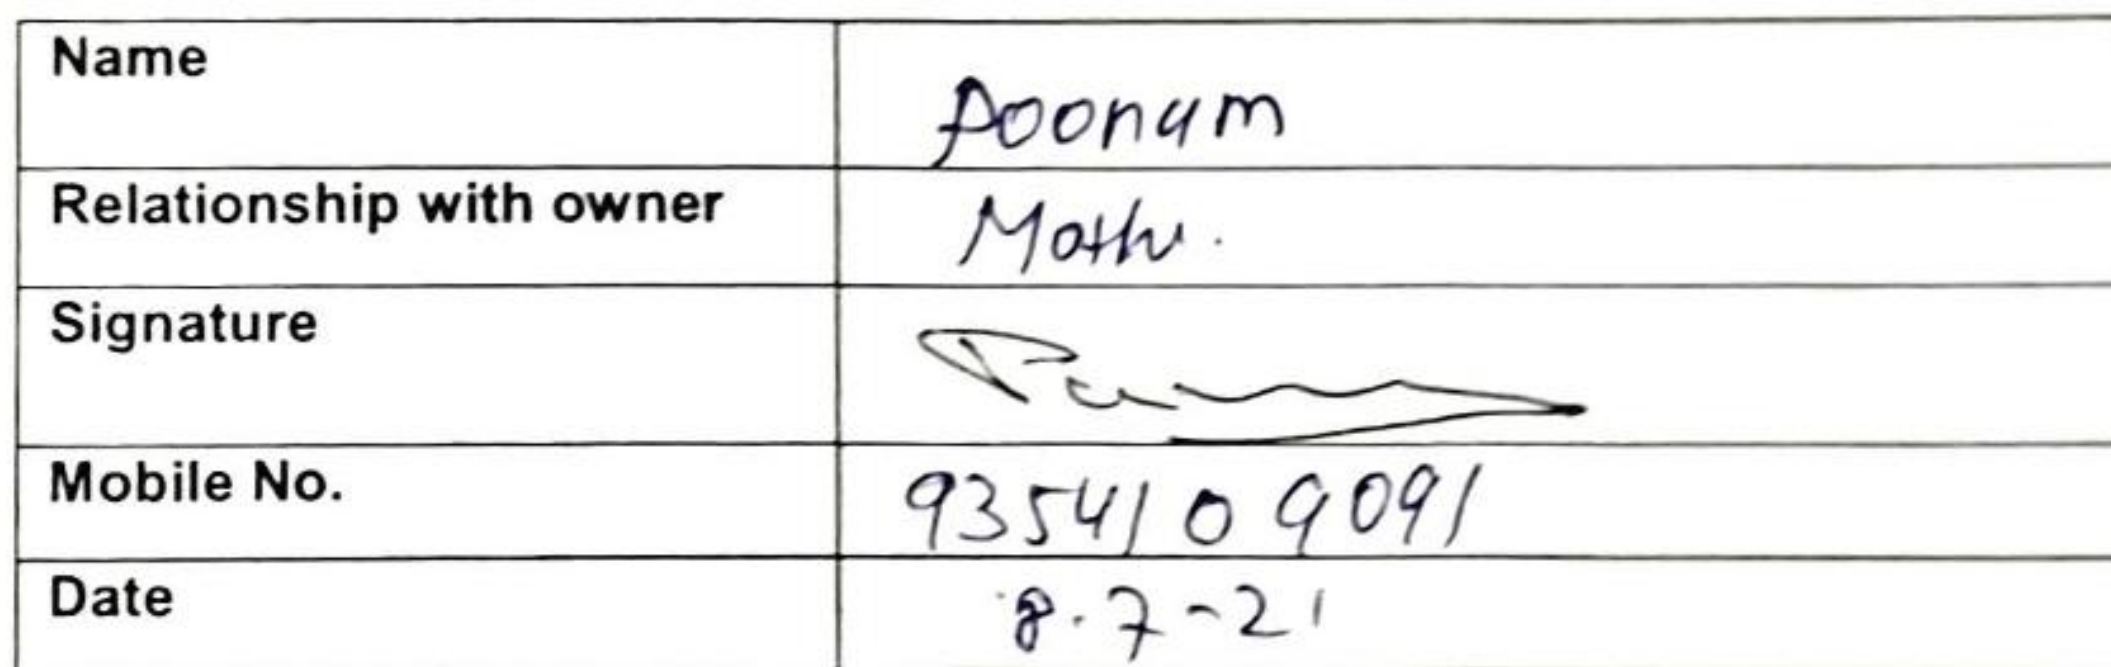 Name Poonam
Relationship with owner Mother.
Signature
Mobile No. 9354109091
Date 8.7-21